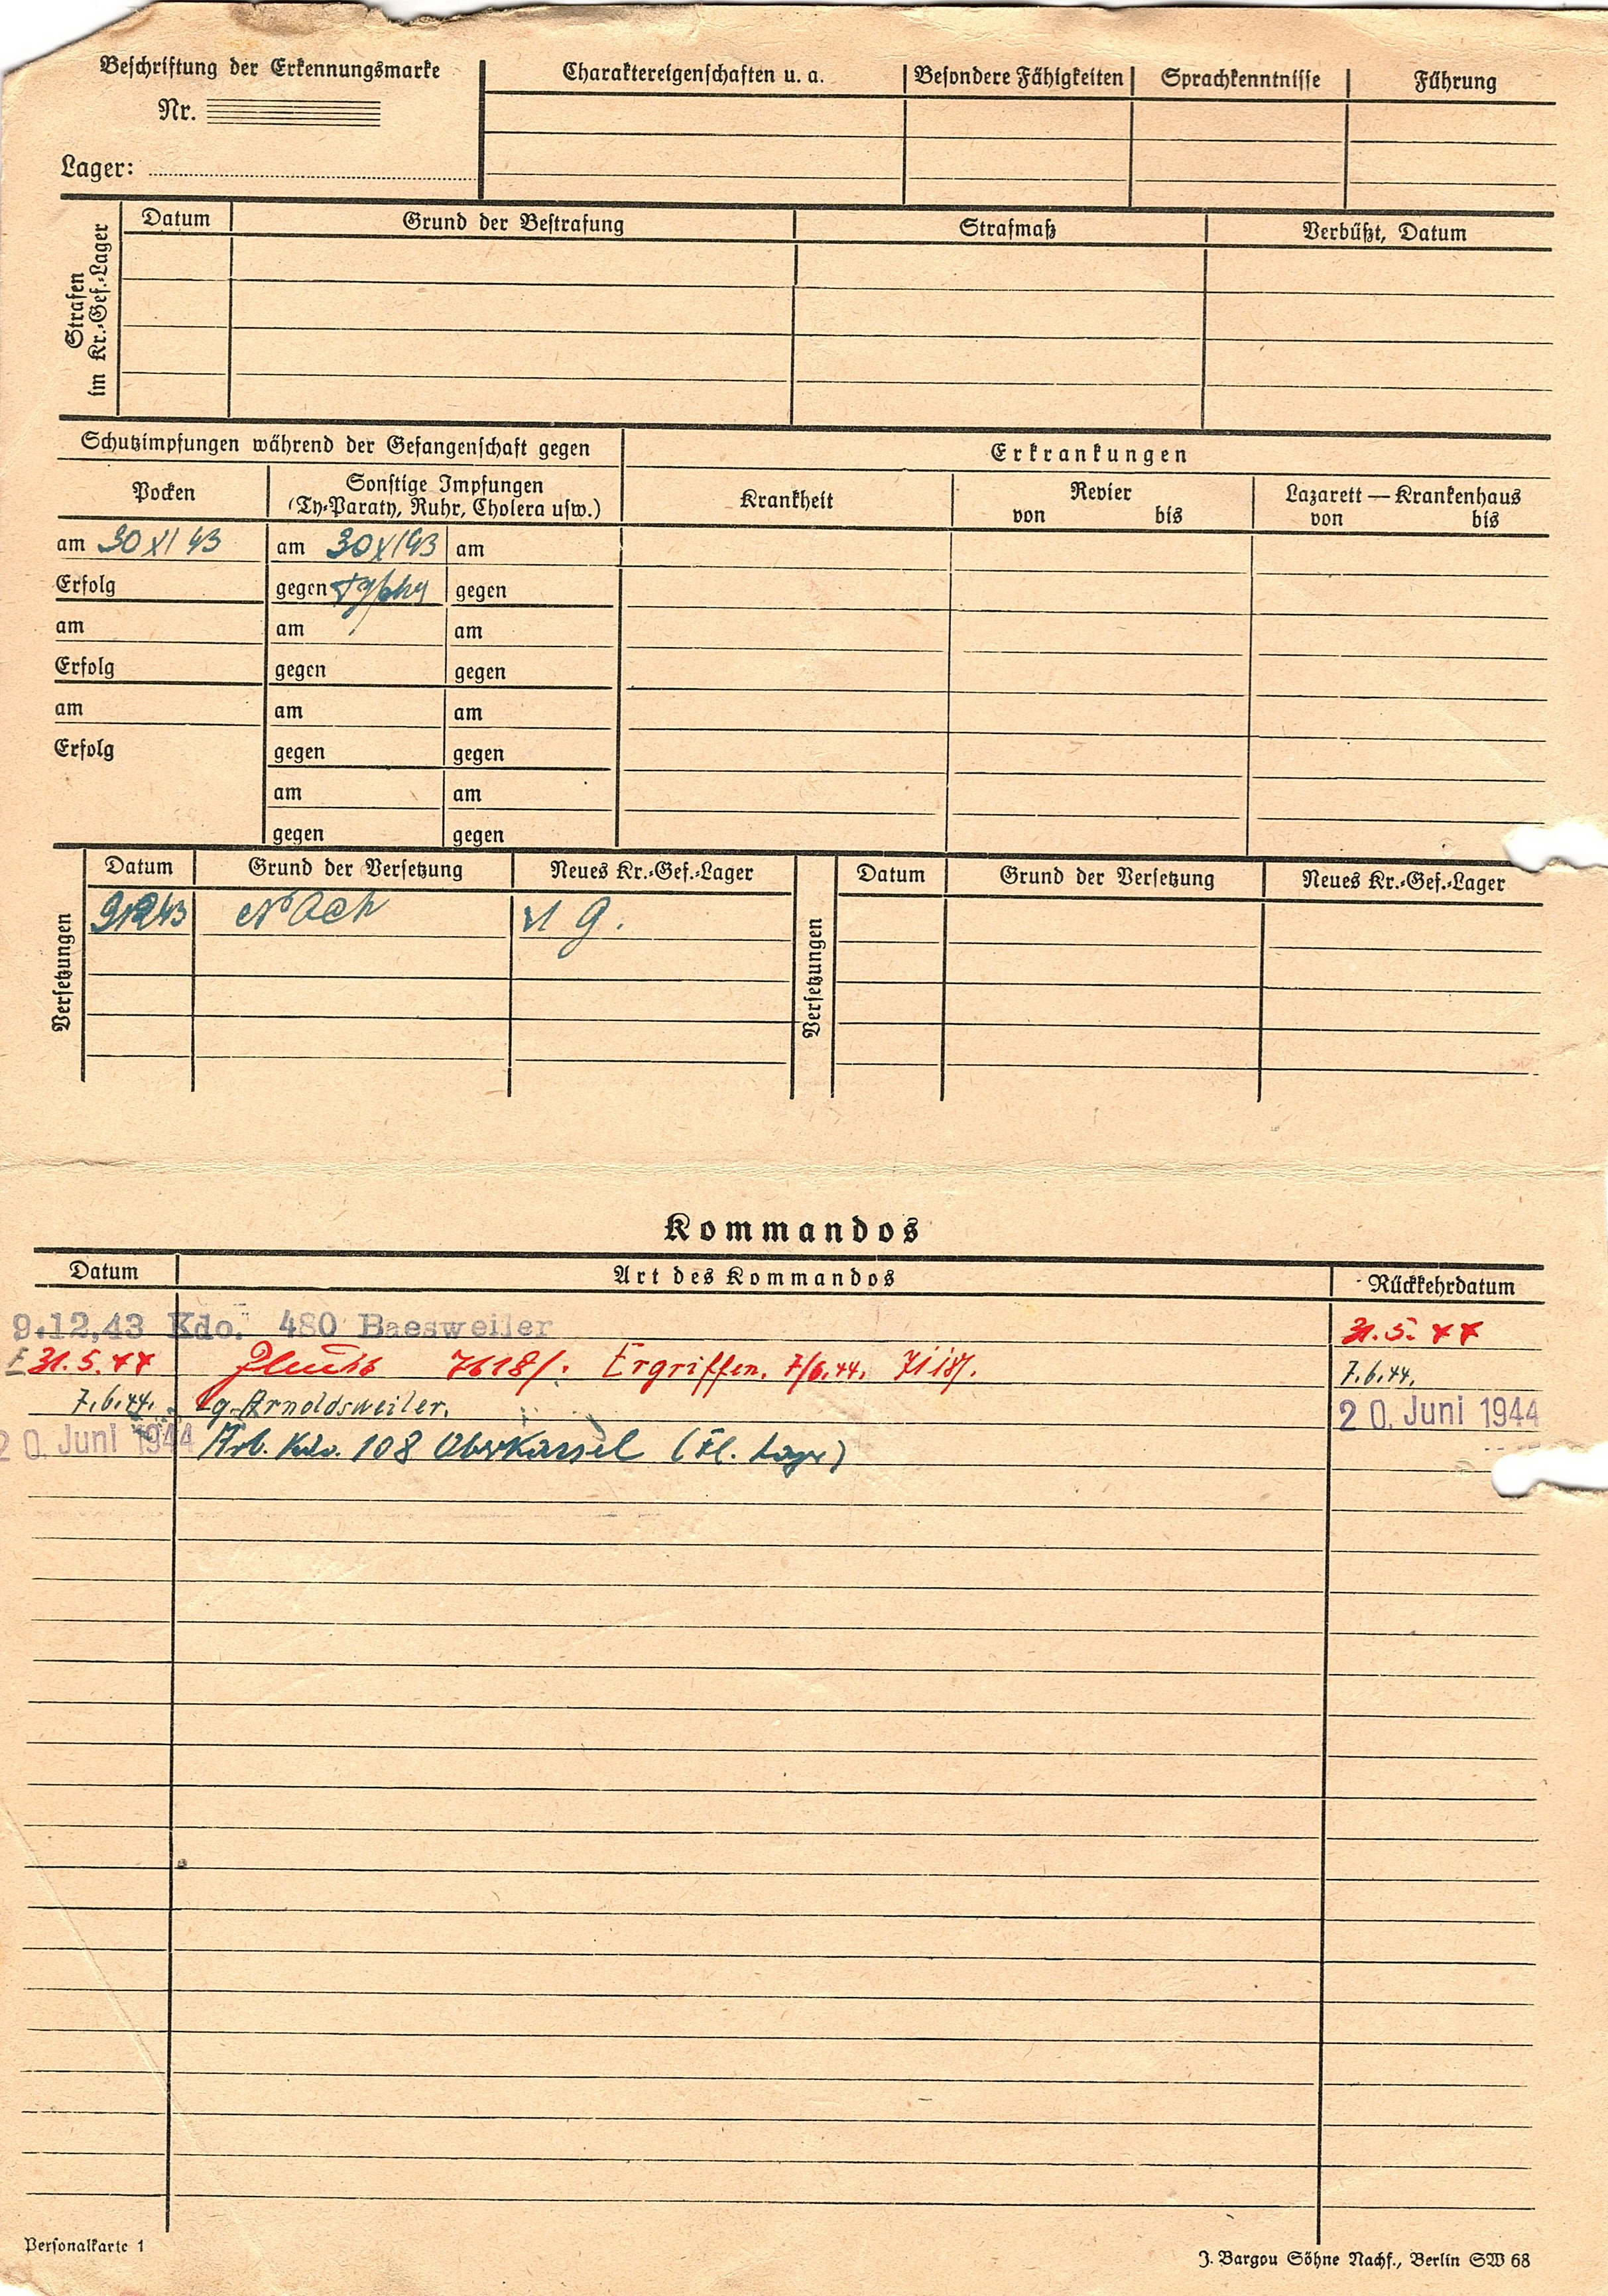 Beschriftung der Erkennungsmarke
Nr.
Lager:
Charaktereigenschaften u. a. Besondere Fähigkeiten Sprachkenntnisse Führung
Strafen im Kr.-Gef.-Lager
Datum Grund der Bestrafung Strafmaß Verbüßt, Datum
Schutzimpfungen während der Gefangenschaft gegen
Erkrankungen
Pocken
Sonstige Impfungen
(Ty-Paraty, Ruhr, Cholera usw.)
Krankheit
Revier
von bis
Lazarett — Krankenhaus
von bis
am 30 XI 43 am 30 XI 43 am
Erfolg gegen gegen
am am am
Erfolg gegen gegen
am am am
Erfolg gegen gegen
am am
gegen gegen
Versetzungen
Datum Grund der Versetzung Neues Kr.-Gef.-Lager
9 12 43 VI G.
Versetzungen
Datum Grund der Versetzung Neues Kr.-Gef.-Lager
Kommandos
Datum Art des Kommandos Rückkehrdatum
9.12.43 Kdo. 480 Baesweiler 31. 5. 44
31. 5. 44 Ergriffen. 7/6.44. 7.6.44.
7.6.44. Lg. Arnoldsweiler. 20. Juni 1944
20. Juni 1944 Arb. Kdo. 108 Oberkassel
Personalkarte 1
J. Bargou Söhne Nachf., Berlin SW 68